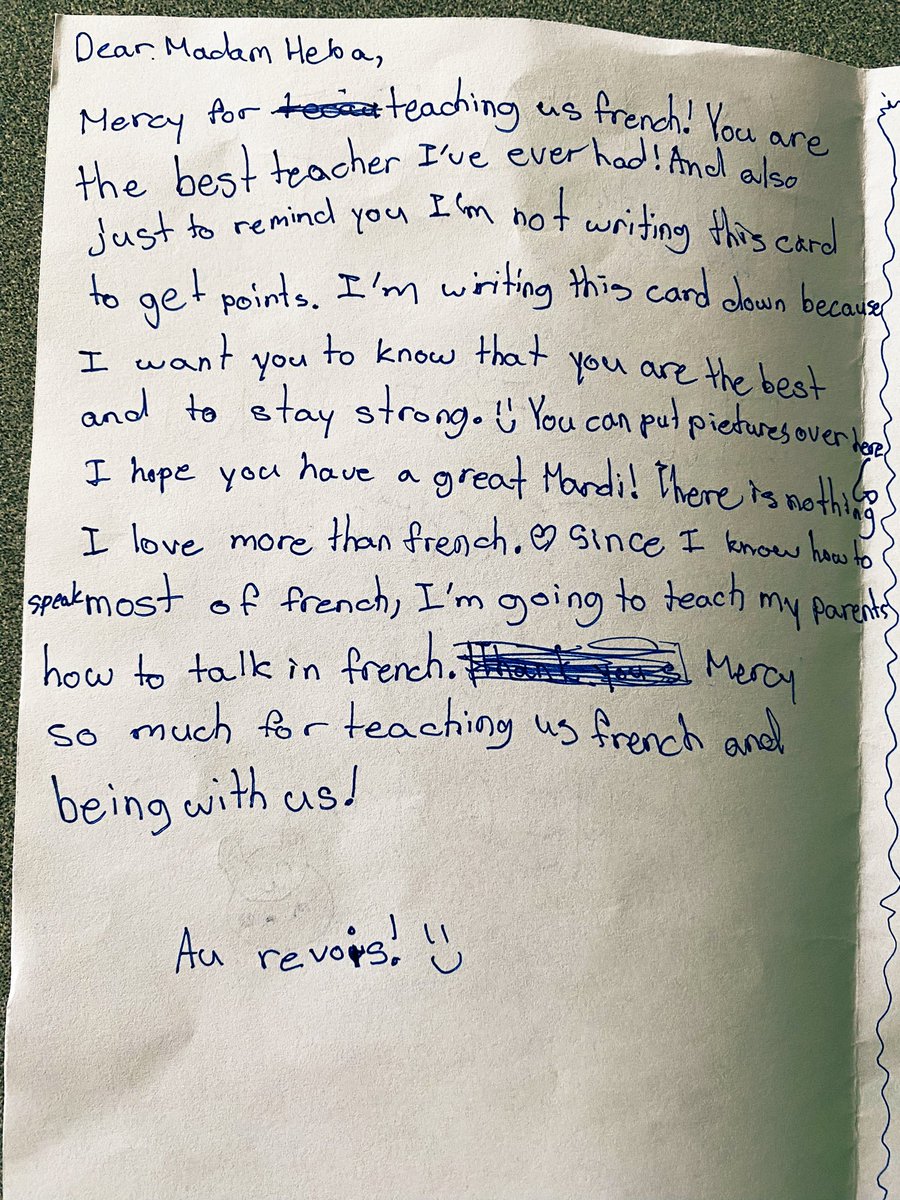 Dear Madam Heba,
Mercy for teaching us french! You are
the best teacher I've ever had! And also
just to remind you I'm not writing this card
to get points. I'm writing this card down because
I want you to know that you are the best
and to stay strong. You can put pictures over here
I hope you have a great Mardi! There is nothing
I love more than french. ♡ Since I know how to
speak most of french, I'm going to teach my parents
how to talk in french. Thank you Mercy
so much for teaching us french and
being with us!
Au revois!